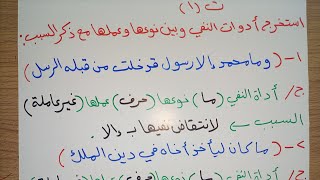 ت (١)
استخرج أدوات النفي وبين نوعها وعملها مع ذكر السبب:
١- (وما محمد إلا رسول قد خلت من قبله الرسل)
ج/ أداة النفي (ما) نوعها (حرف) عملها (غير عاملة)
السبب ← لانتقاض نفيها بـ إلا.
٢- (ما كان ليأخذ أخاه في دين الملك)
ج/ أداة النفي (ما) نوعها (حرف)